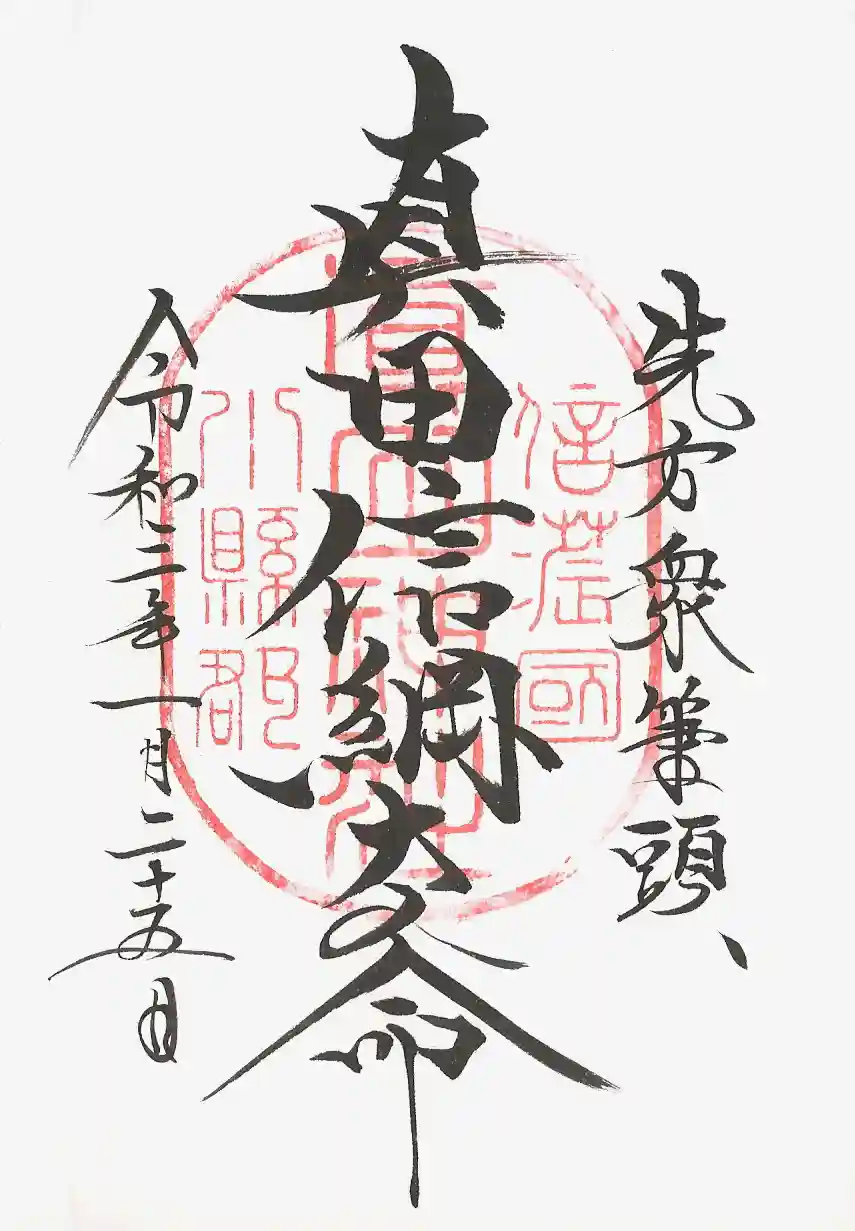 先方衆筆頭、
真田信綱大人命
令和二年一月二十五日
信濃國
小縣郡